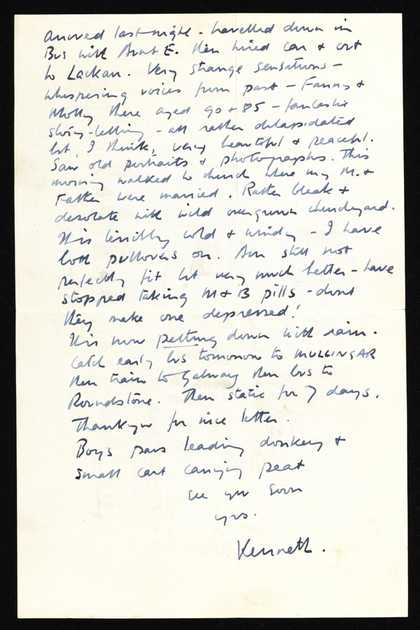 arrived last night. travelled down in
Bus with Aunt E. then hired car & out
to Lackan. Very strange sensations -
whispering voices from past - Fanny &
Molly there aged 90 + 85 - fantastic
story-telling - all rather delapidated
but, I think, very beautiful & peaceful.
Saw old portraits & photographs. This
morning walked to church where my M. &
Father were married. Rather bleak &
desolate with wild overgrown churchyard.
It is terribly cold & windy - I have
both pullovers on. Am still not
perfectly fit but very much better - have
stopped taking M & B pills - dont
they make one depressed!
It is now pelting down with rain.
Catch early bus tomorrow to MULLINGAR
then train to Galway then bus to
Roundstone. Then static for 7 days.
Thank you for nice letter.
Boys pass leading donkey &
small cart carrying peat
see you soon
yrs.
Kenneth.